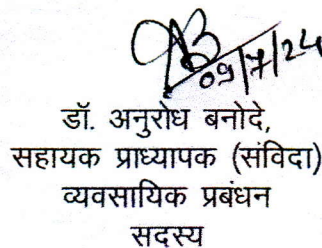 09/7/24
डॉ. अनुरोध बनोदे,
सहायक प्राध्यापक (संविदा)
व्यवसायिक प्रबंधन
सदस्य